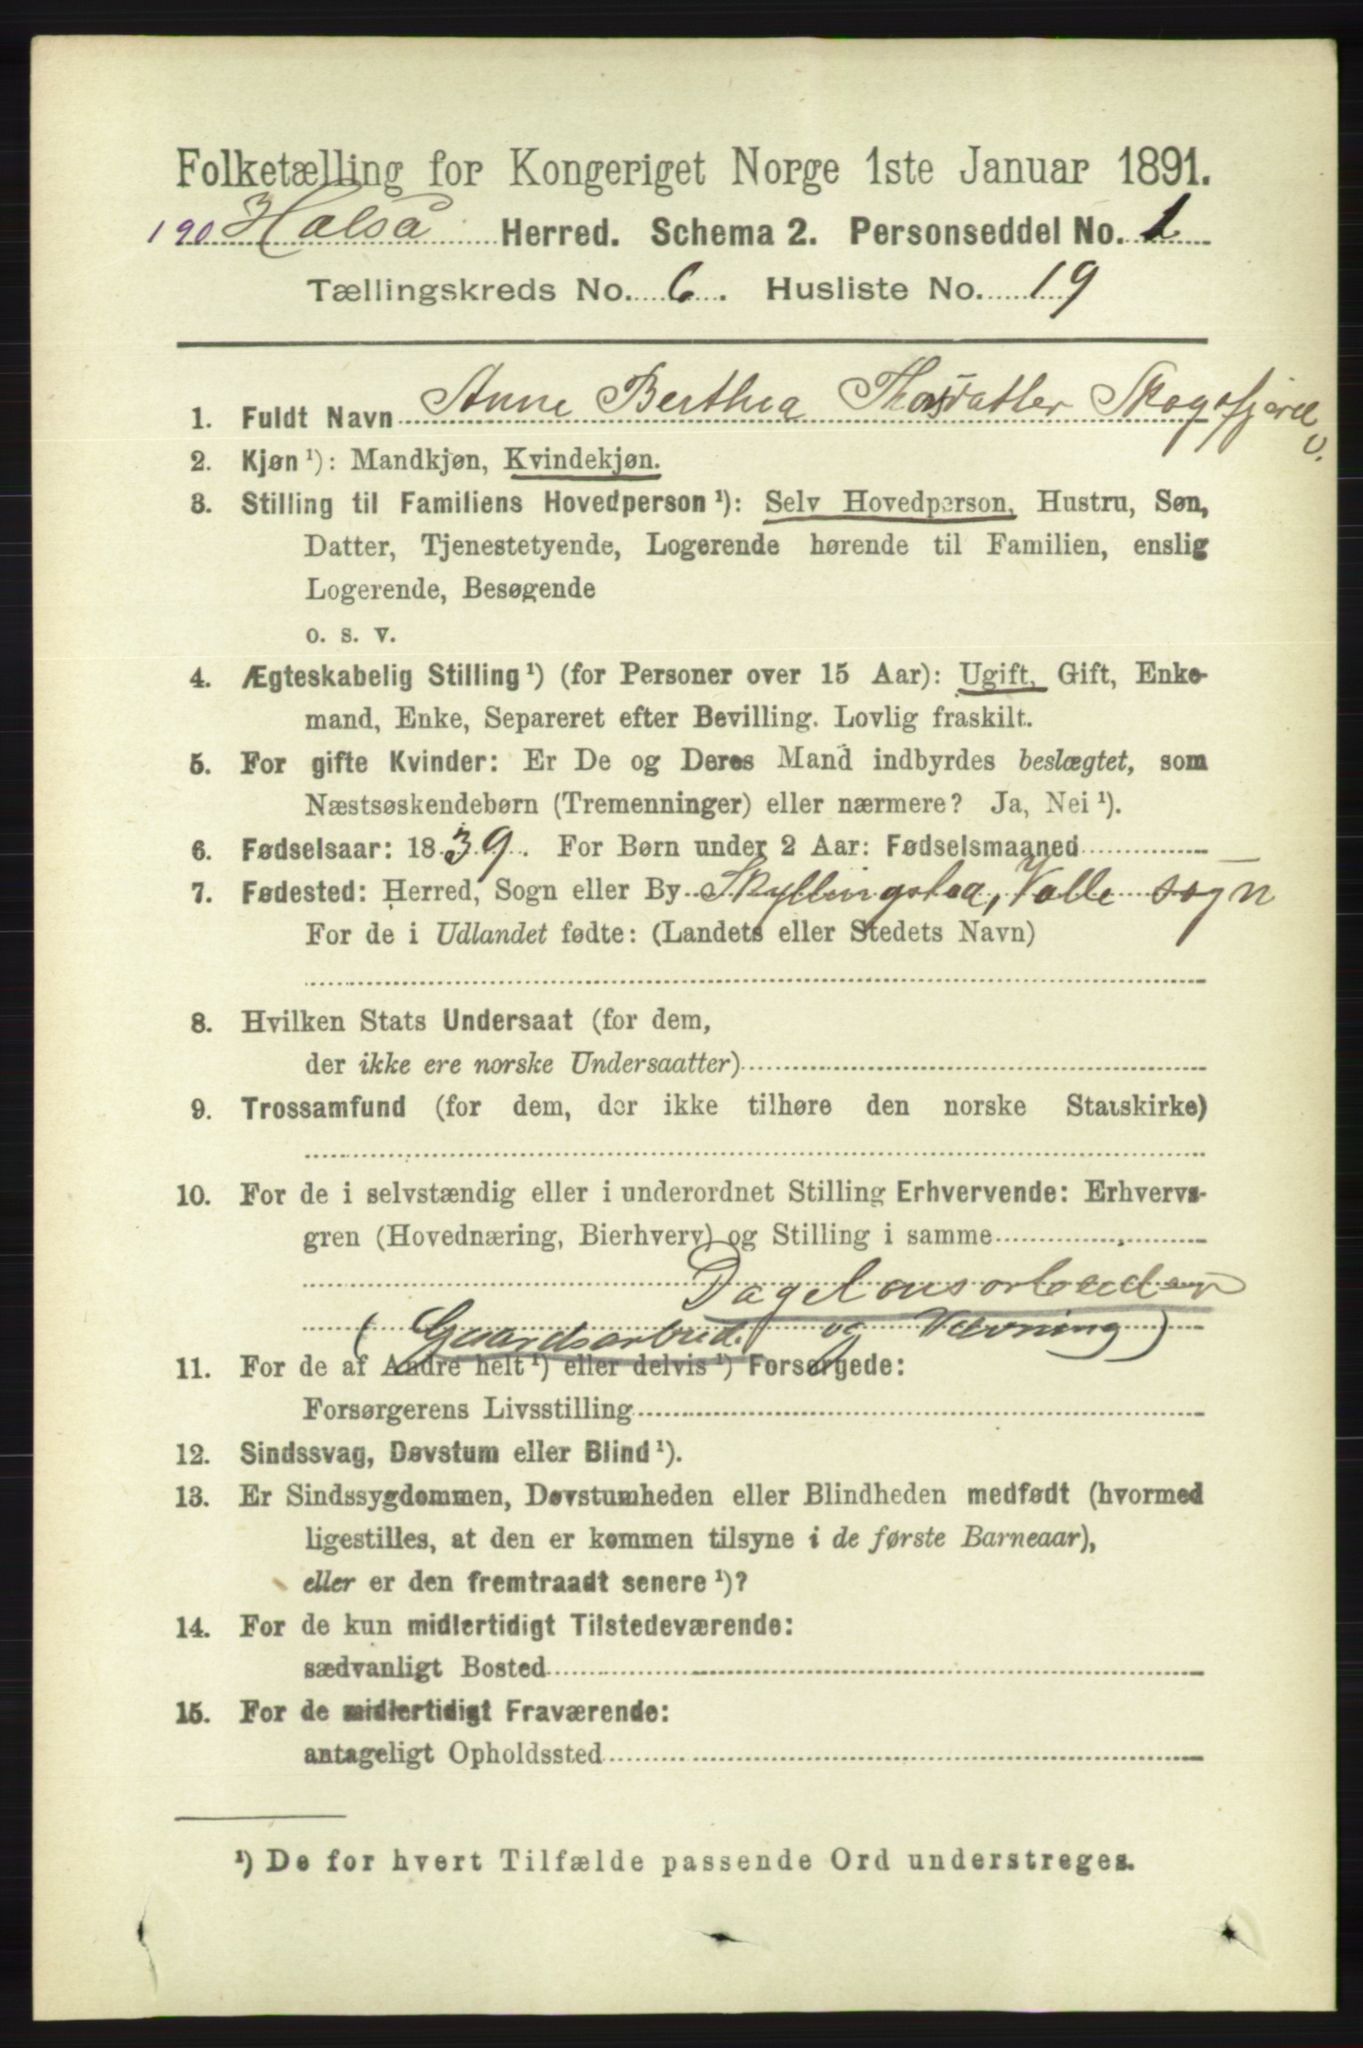 Folketælling for Kongeriget Norge 1ste Januar 1891.
190 Halså Herred. Schema 2. Personseddel No. 1
Tællingskreds No. 6. Husliste No. 19
1. Fuldt Navn Anne Berthea Thorsdatter Skogsfjord
2. Kjøn ¹): Mandkjøn, Kvindekjøn.
3. Stilling til Familiens Hovedperson ¹): Selv Hovedperson, Hustru, Søn,
Datter, Tjenestetyende, Logerende hørende til Familien, enslig
Logerende, Besøgende
o. s. v.
4. Ægteskabelig Stilling ¹) (for Personer over 15 Aar): Ugift, Gift, Enke-
mand, Enke, Separeret efter Bevilling. Lovlig fraskilt.
5. For gifte Kvinder: Er De og Deres Mand indbyrdes beslægtet, som
Næstsøskendebørn (Tremenninger) eller nærmere? Ja, Nei ¹).
6. Fødselsaar: 1839. For Børn under 2 Aar: Fødselsmaaned
7. Fødested: Herred, Sogn eller By Skyllingstad, Valle sogn
For de i Udlandet fødte: (Landets eller Stedets Navn)
8. Hvilken Stats Undersaat (for dem,
der ikke ere norske Undersaatter)
9. Trossamfund (for dem, der ikke tilhøre den norske Statskirke)
10. For de i selvstændig eller i underordnet Stilling Erhvervende: Erhvervs-
gren (Hovednæring, Bierhverv) og Stilling i samme
Daglønsarbeider
(Gaardsarbeid. og Vævning)
11. For de af Andre helt ¹) eller delvis ¹) Forsørgede:
Forsørgerens Livsstilling
12. Sindssvag, Døvstum eller Blind ¹).
13. Er Sindssygdommen, Døvstumheden eller Blindheden medfødt (hvormed
ligestilles, at den er kommen tilsyne i de første Barneaar),
eller er den fremtraadt senere ¹)?
14. For de kun midlertidigt Tilstedeværende:
sædvanligt Bosted
15. For de midlertidigt Fraværende:
antageligt Opholdssted
¹) De for hvert Tilfælde passende Ord understreges.